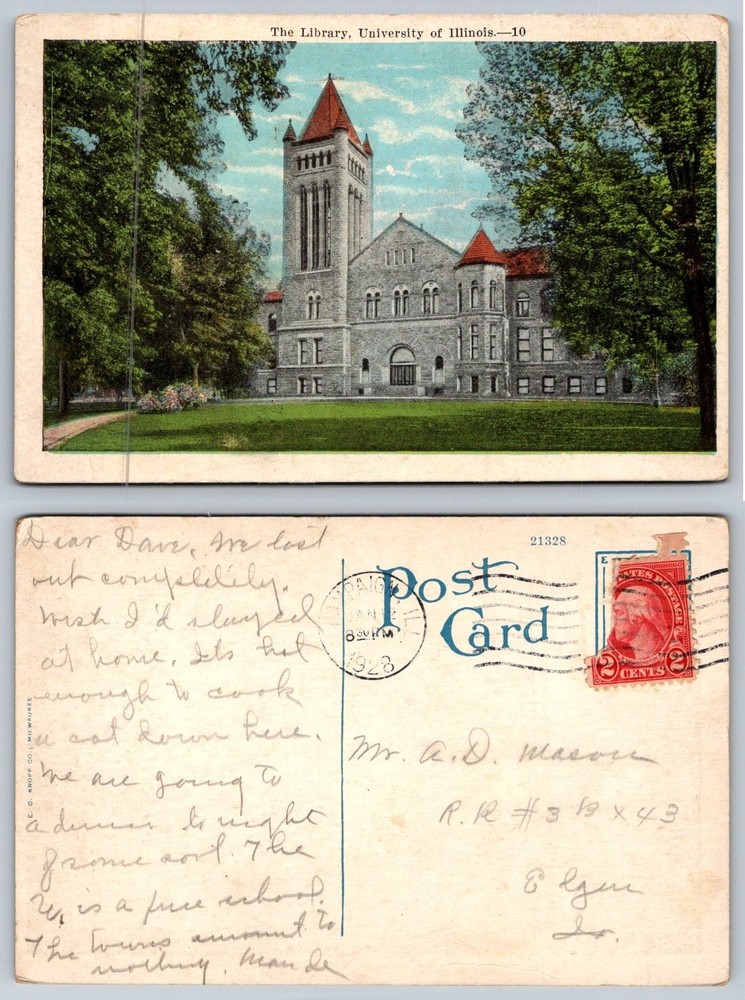 The Library, University of Illinois.—10
Dear Dave, We lost
out completely.
Wish I'd stayed
at home. Its hot
enough to cook
a cat down here.
We are going to
a dinner to night
of some sort. The
U. is a fine school.
The towns amount to
nothing. Maude
E. C. KROPP CO., MILWAUKEE
21328
Post
Card
CHAMPAIGN, ILL.
JAN
8 30 PM
1928
STATES POSTAGE
2 CENTS 2
Mr. A. D. Mason
R. R. #3 B x 43
Elgin